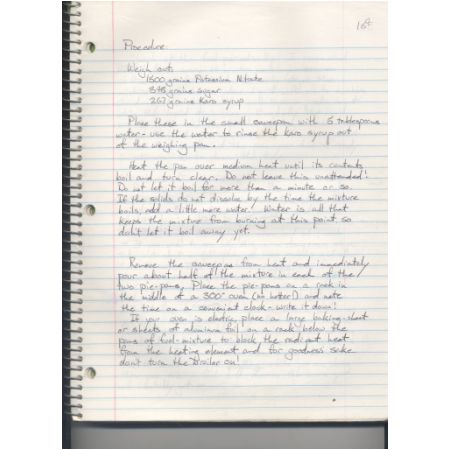 1st
Procedure
Weigh out:
1800 grains Potassium Nitrate
848 grains sugar
267 grains Karo syrup
Place these in the small saucepan with 5 tablespoons
water - use the water to rinse the Karo syrup out
of the weighing pan.
Heat the pan over medium heat until its contents
boil and turn clear. Do not leave this unattended!
Do not let it boil for more than a minute or so.
If the solids do not dissolve by the time the mixture
boils, add a little more water! Water is all that
keeps the mixture from burning at this point so
don't let it boil away yet.
Remove the saucepan from heat and immediately
pour about half of the mixture in each of the
two pie-pans. Place the pie-pans on a rack in
the middle of a 300° oven (no hotter!) and note
the time on a convenient clock - write it down!
If your oven is electric, place a large baking-sheet
or sheets of aluminum foil on a rack below the
pans of fuel-mixture to block the radiant heat
from the heating element and for goodness sake
don't turn the broiler on!